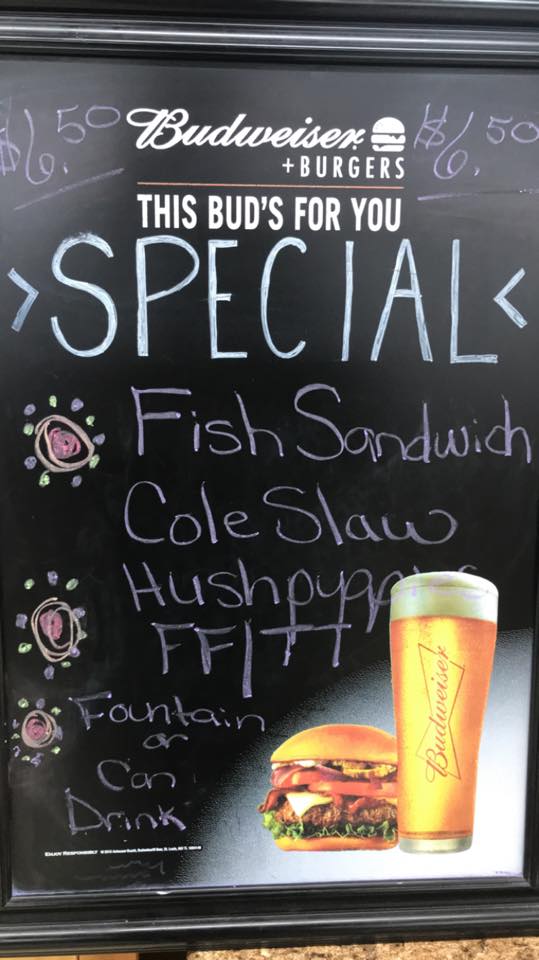 $6.50 Budweiser $6.50
+BURGERS
THIS BUD'S FOR YOU
>SPECIAL<
Fish Sandwich
Cole Slaw
Hushpuppies
FF/TT
Fountain
or
Can
Drink
Budweiser
ENJOY RESPONSIBLY